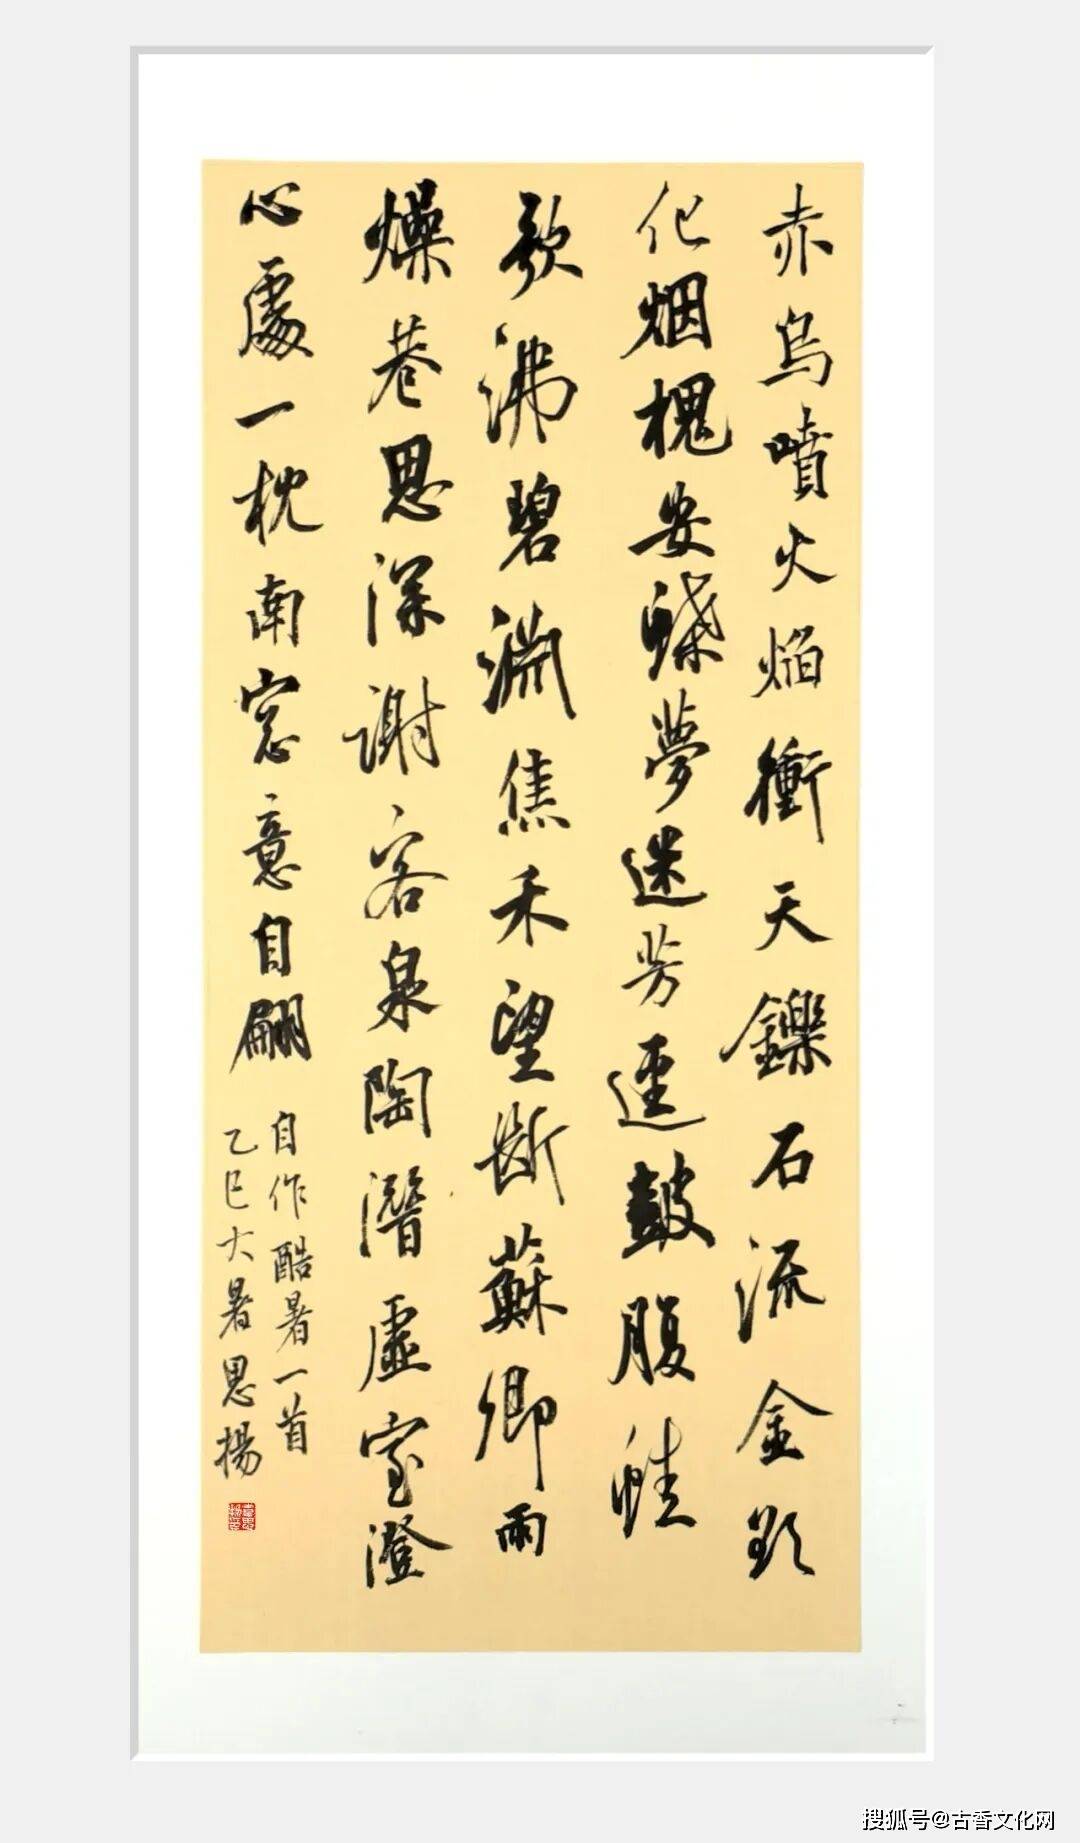 赤烏噴火焰衝天鑠石流金欲
化烟槐安蝶夢迷芳逕鼓腹蛙
歌沸碧淵焦禾望斷蘇卿雨
燥巷思深謝客泉陶潛虛室澄
心處一枕南窓意自翩
自作酷暑一首
乙巳大暑思揚
搜狐号@古香文化网